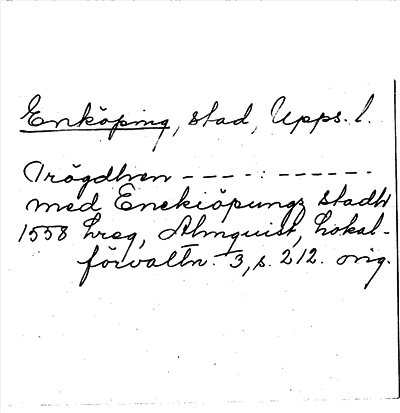 Enköping, stad, Upps. l.
Trögdhren - - - - : - - - - - -
med Enekiöpungz stadh
1558 hreg, Almquist, Lokal-
förvaltn. 3, s. 212. orig.